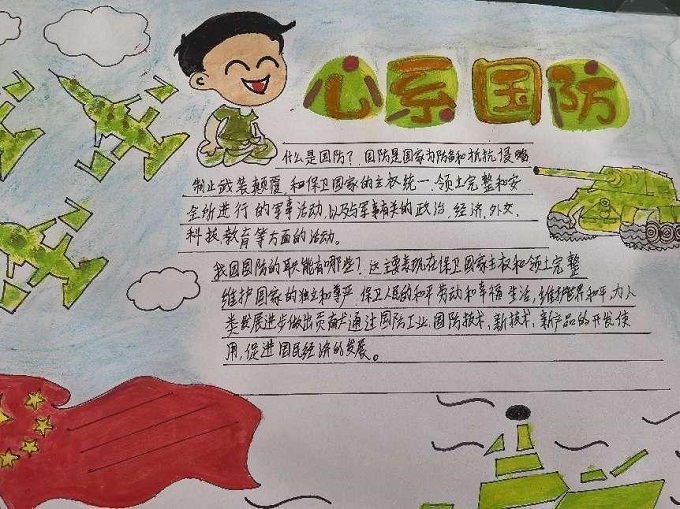 心系国防
什么是国防？国防是国家为防备和抵抗侵略
制止武装颠覆，和保卫国家的主权统一、领土完整和安
全所进行的军事活动，以及与军事有关的政治，经济，外交，
科技，教育等方面的活动。
我国国防的职能有哪些？这主要表现在保卫国家主权和领土完整
维护国家的独立和尊严 保卫人民的和平劳动和幸福生活，维护世界和平，为人
类发展进步做出贡献 通过国防工业、国防技术，新技术，新产品的开发使
用，促进国民经济的发展。